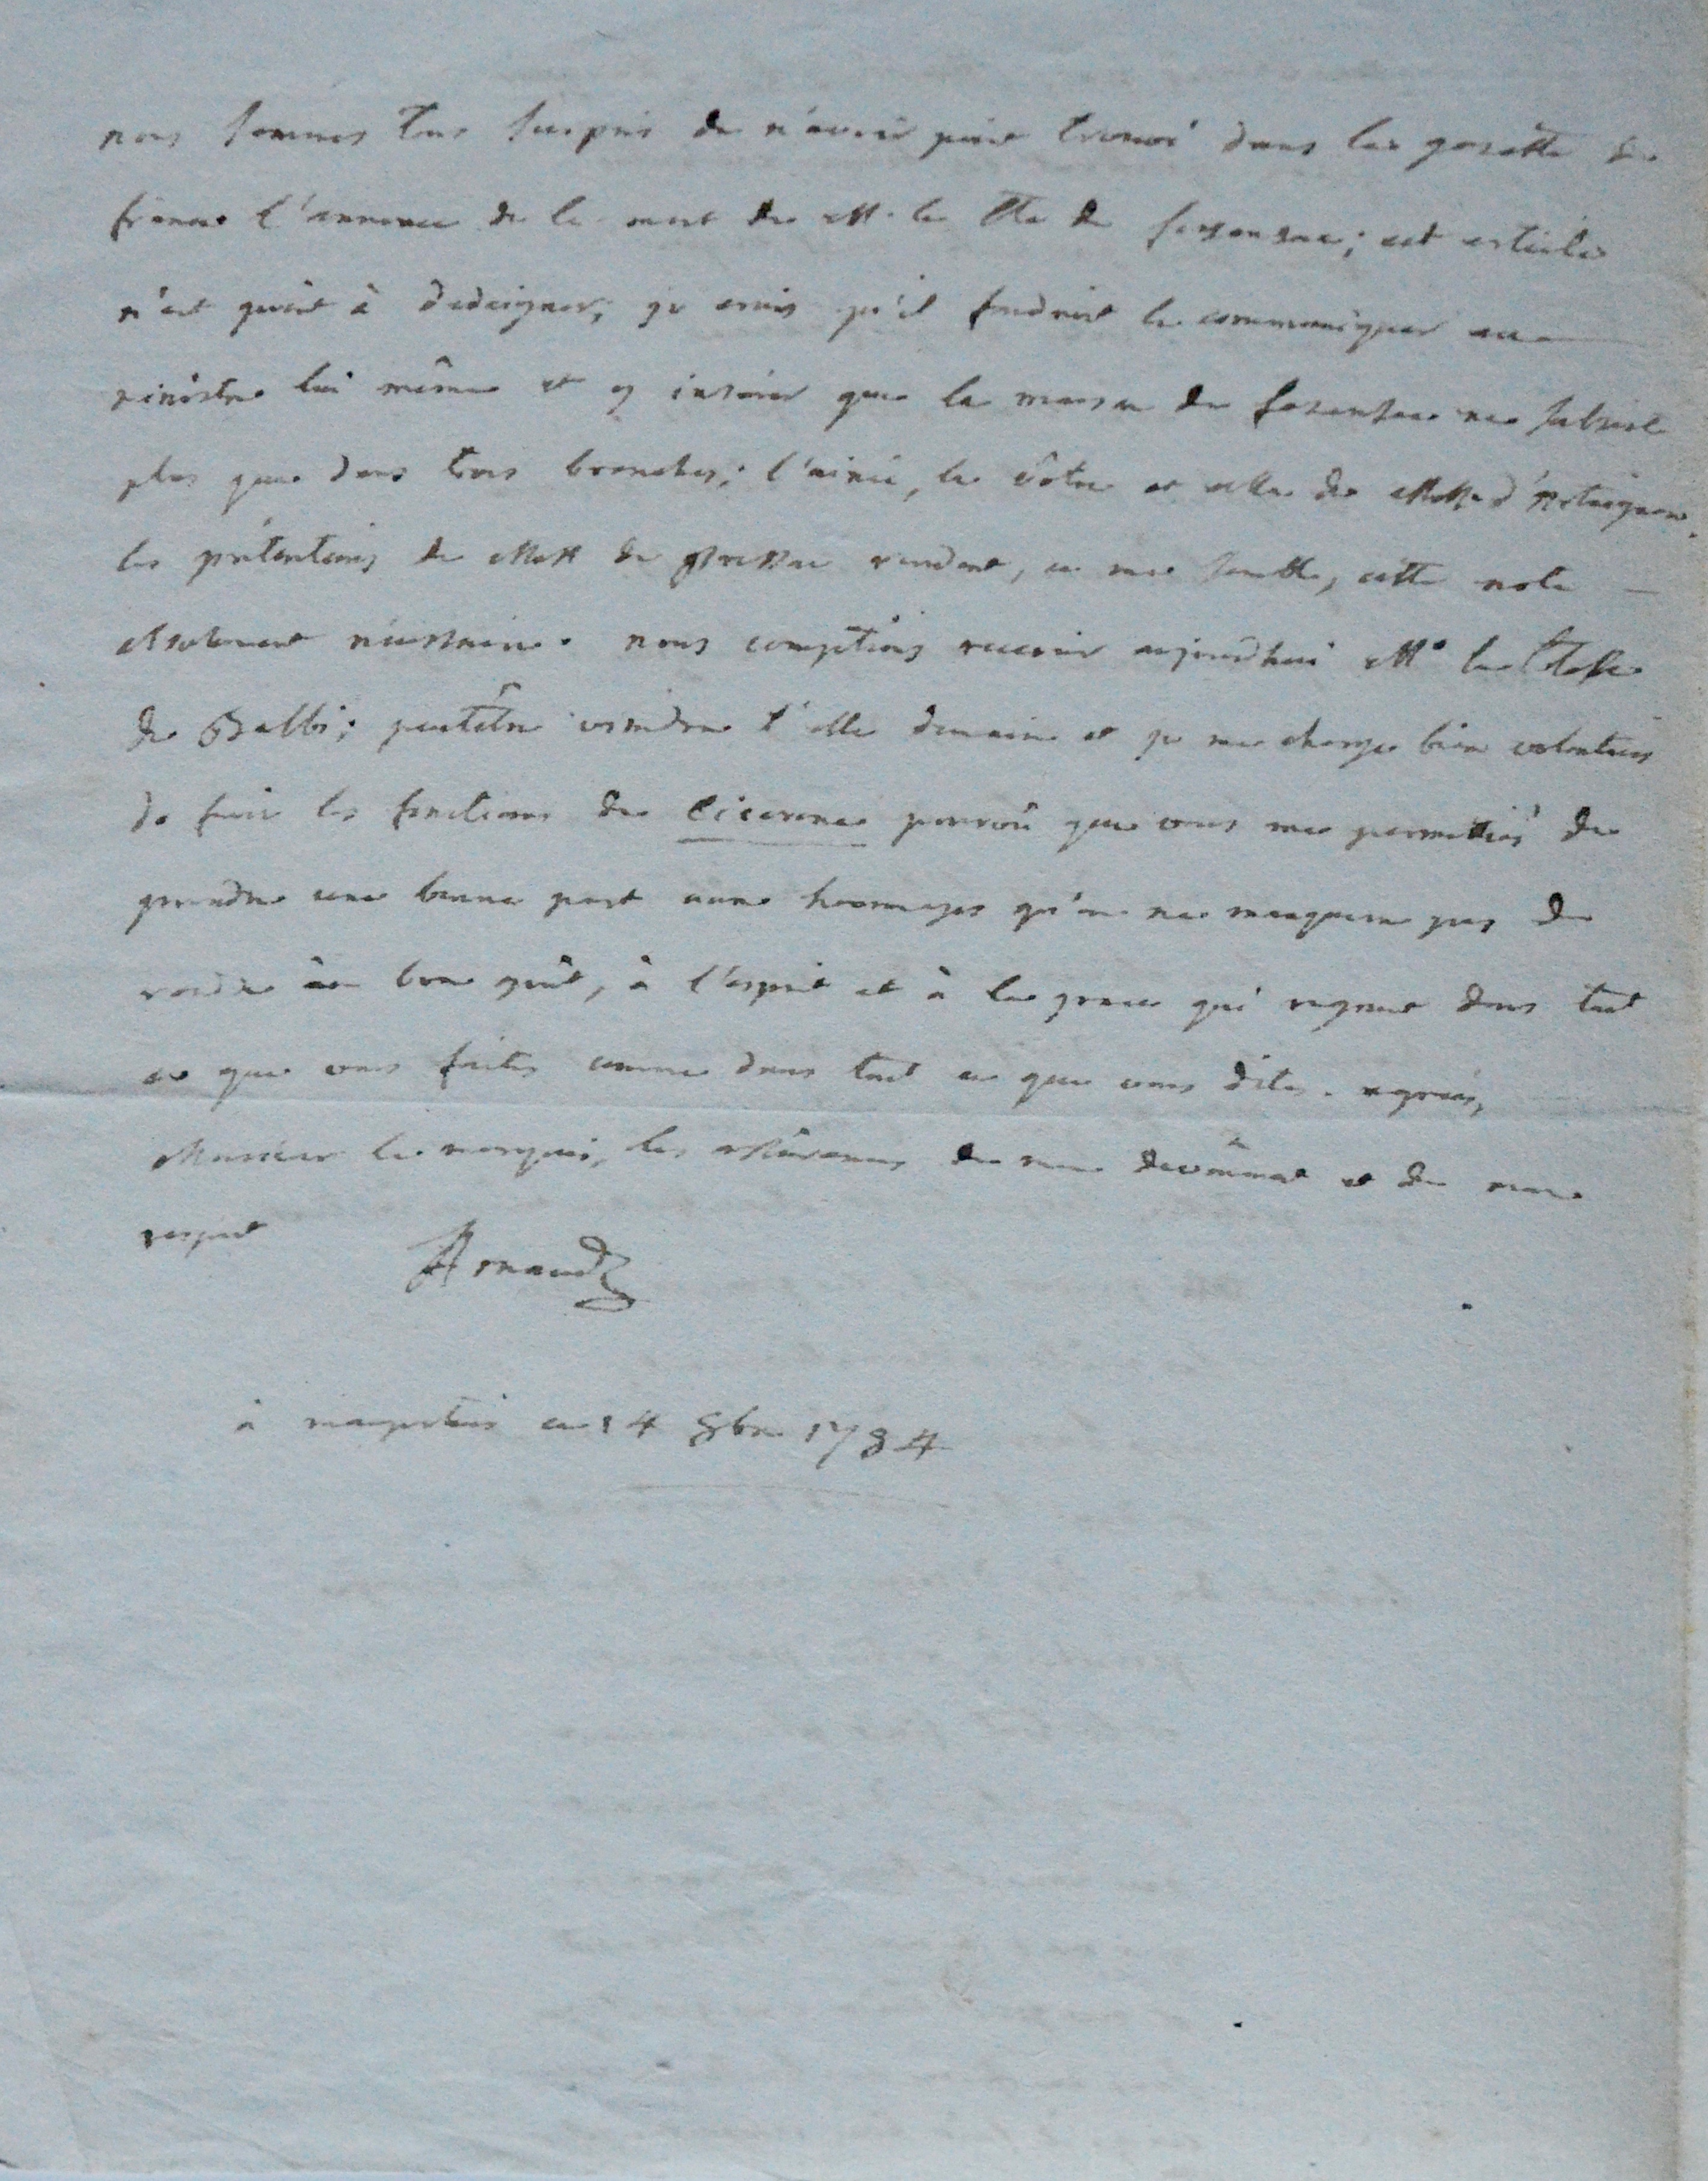 nous sommes tous surpris de n'avoir point trouvé dans la gazette de
france l'annonce de la mort de M. le Cte de fezenzac; cet article
n'est point à dedaigner; je crois qu'il faudroit le communiquer au
ministre lui même et y insérer que la maison de fezensac ne subsiste
plus que dans trois branches; l'ainée, la vôtre et celle de d'Artaignan.
les prétentions de de rendent, ce me semble, cette note
absolument nécessaire. nous comptions recevoir aujourdhui Me la Ctesse
de Balbi; peutêtre viendra t'elle demain et je me charge bien volontiers
de faire les fonctions de Cicerone pourvû que vous me permettiés de
prendre une bonne part aux hommages qu'on ne manquera pas de
rendre au bon goût, à l'esprit et à la grace qui regnent dans tout
ce que vous faites comme dans tout ce que vous dites. agréés,
Monsieur le marquis, les assûrances de mon devoûment et de mon
respect Arnaud
à maupertuis ce 14 8bre 1784